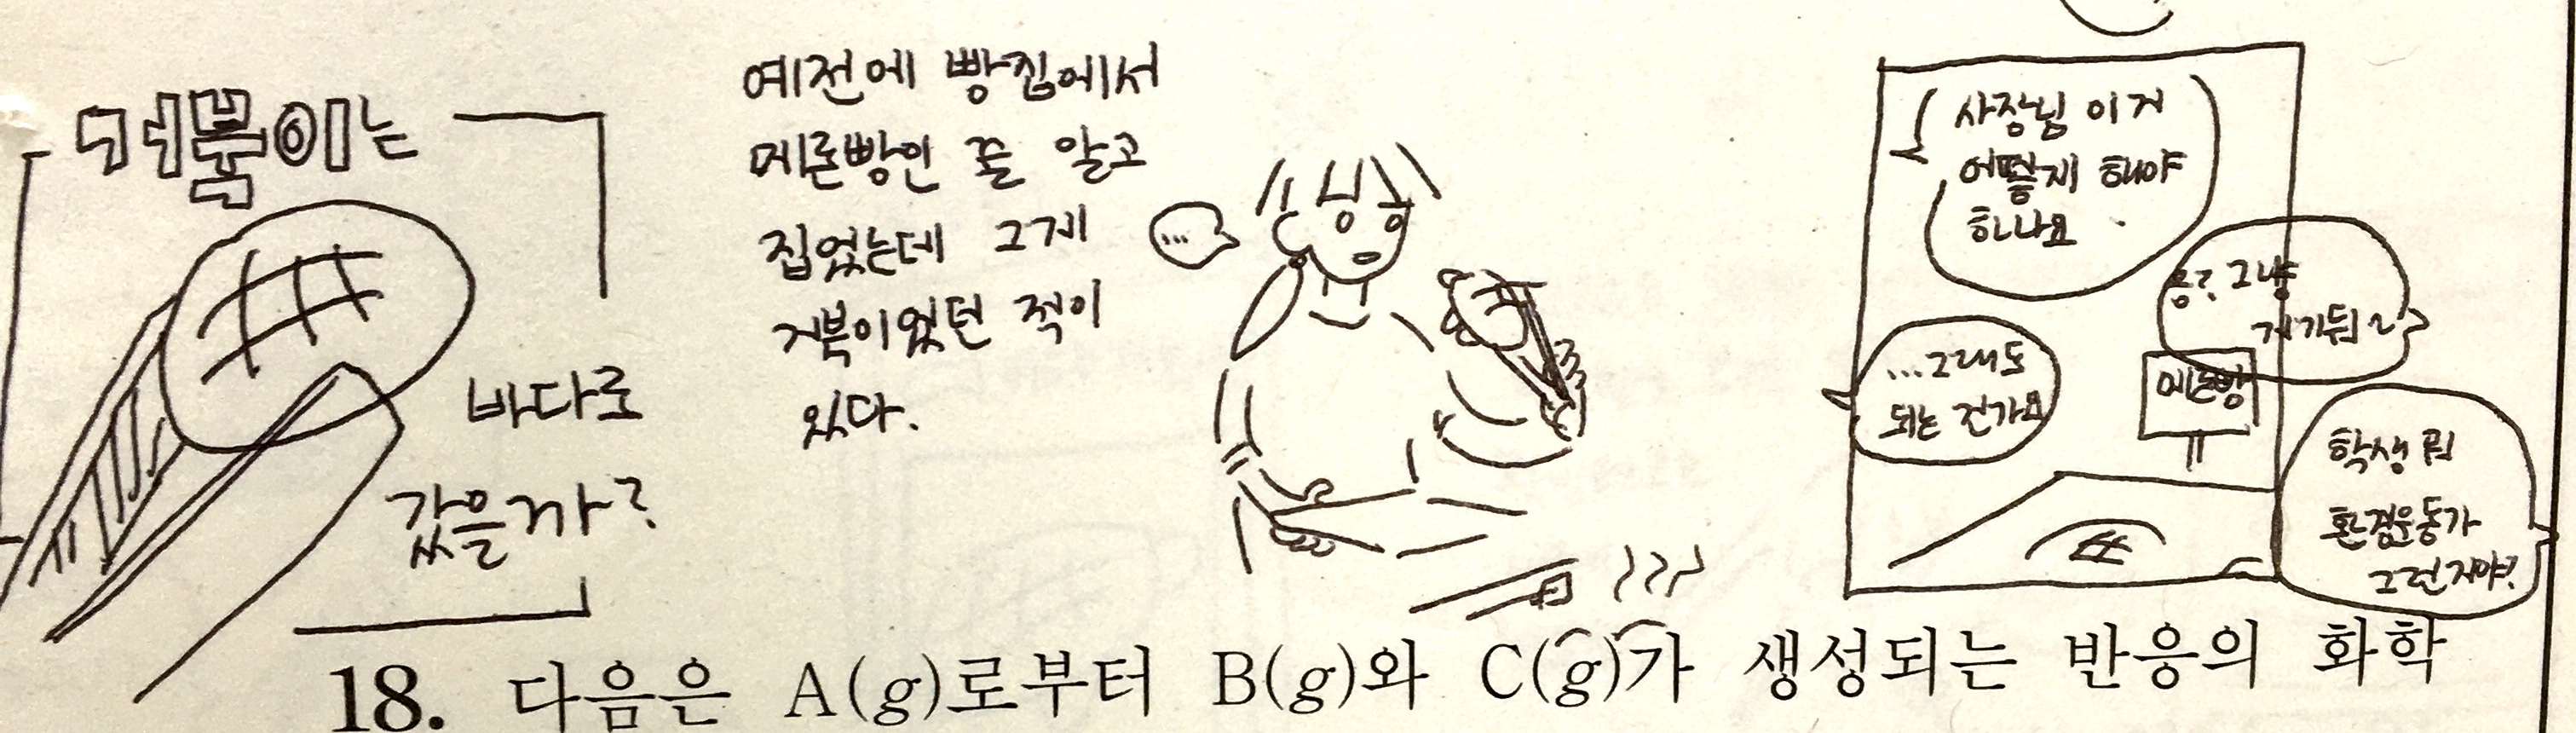 거북이는
바다로
갔을까?
예전에 빵집에서
메론빵인 줄 알고
집었는데 그게
거북이였던 적이
있다.
...
사장님 이거
어떻게 해야
하나요
응? 그냥
거기둬~
...그래도
되는 건가요
메론빵
학생 뭐
환경운동가
그런거야?
18. 다음은 A(g)로부터 B(g)와 C(g)가 생성되는 반응의 화학